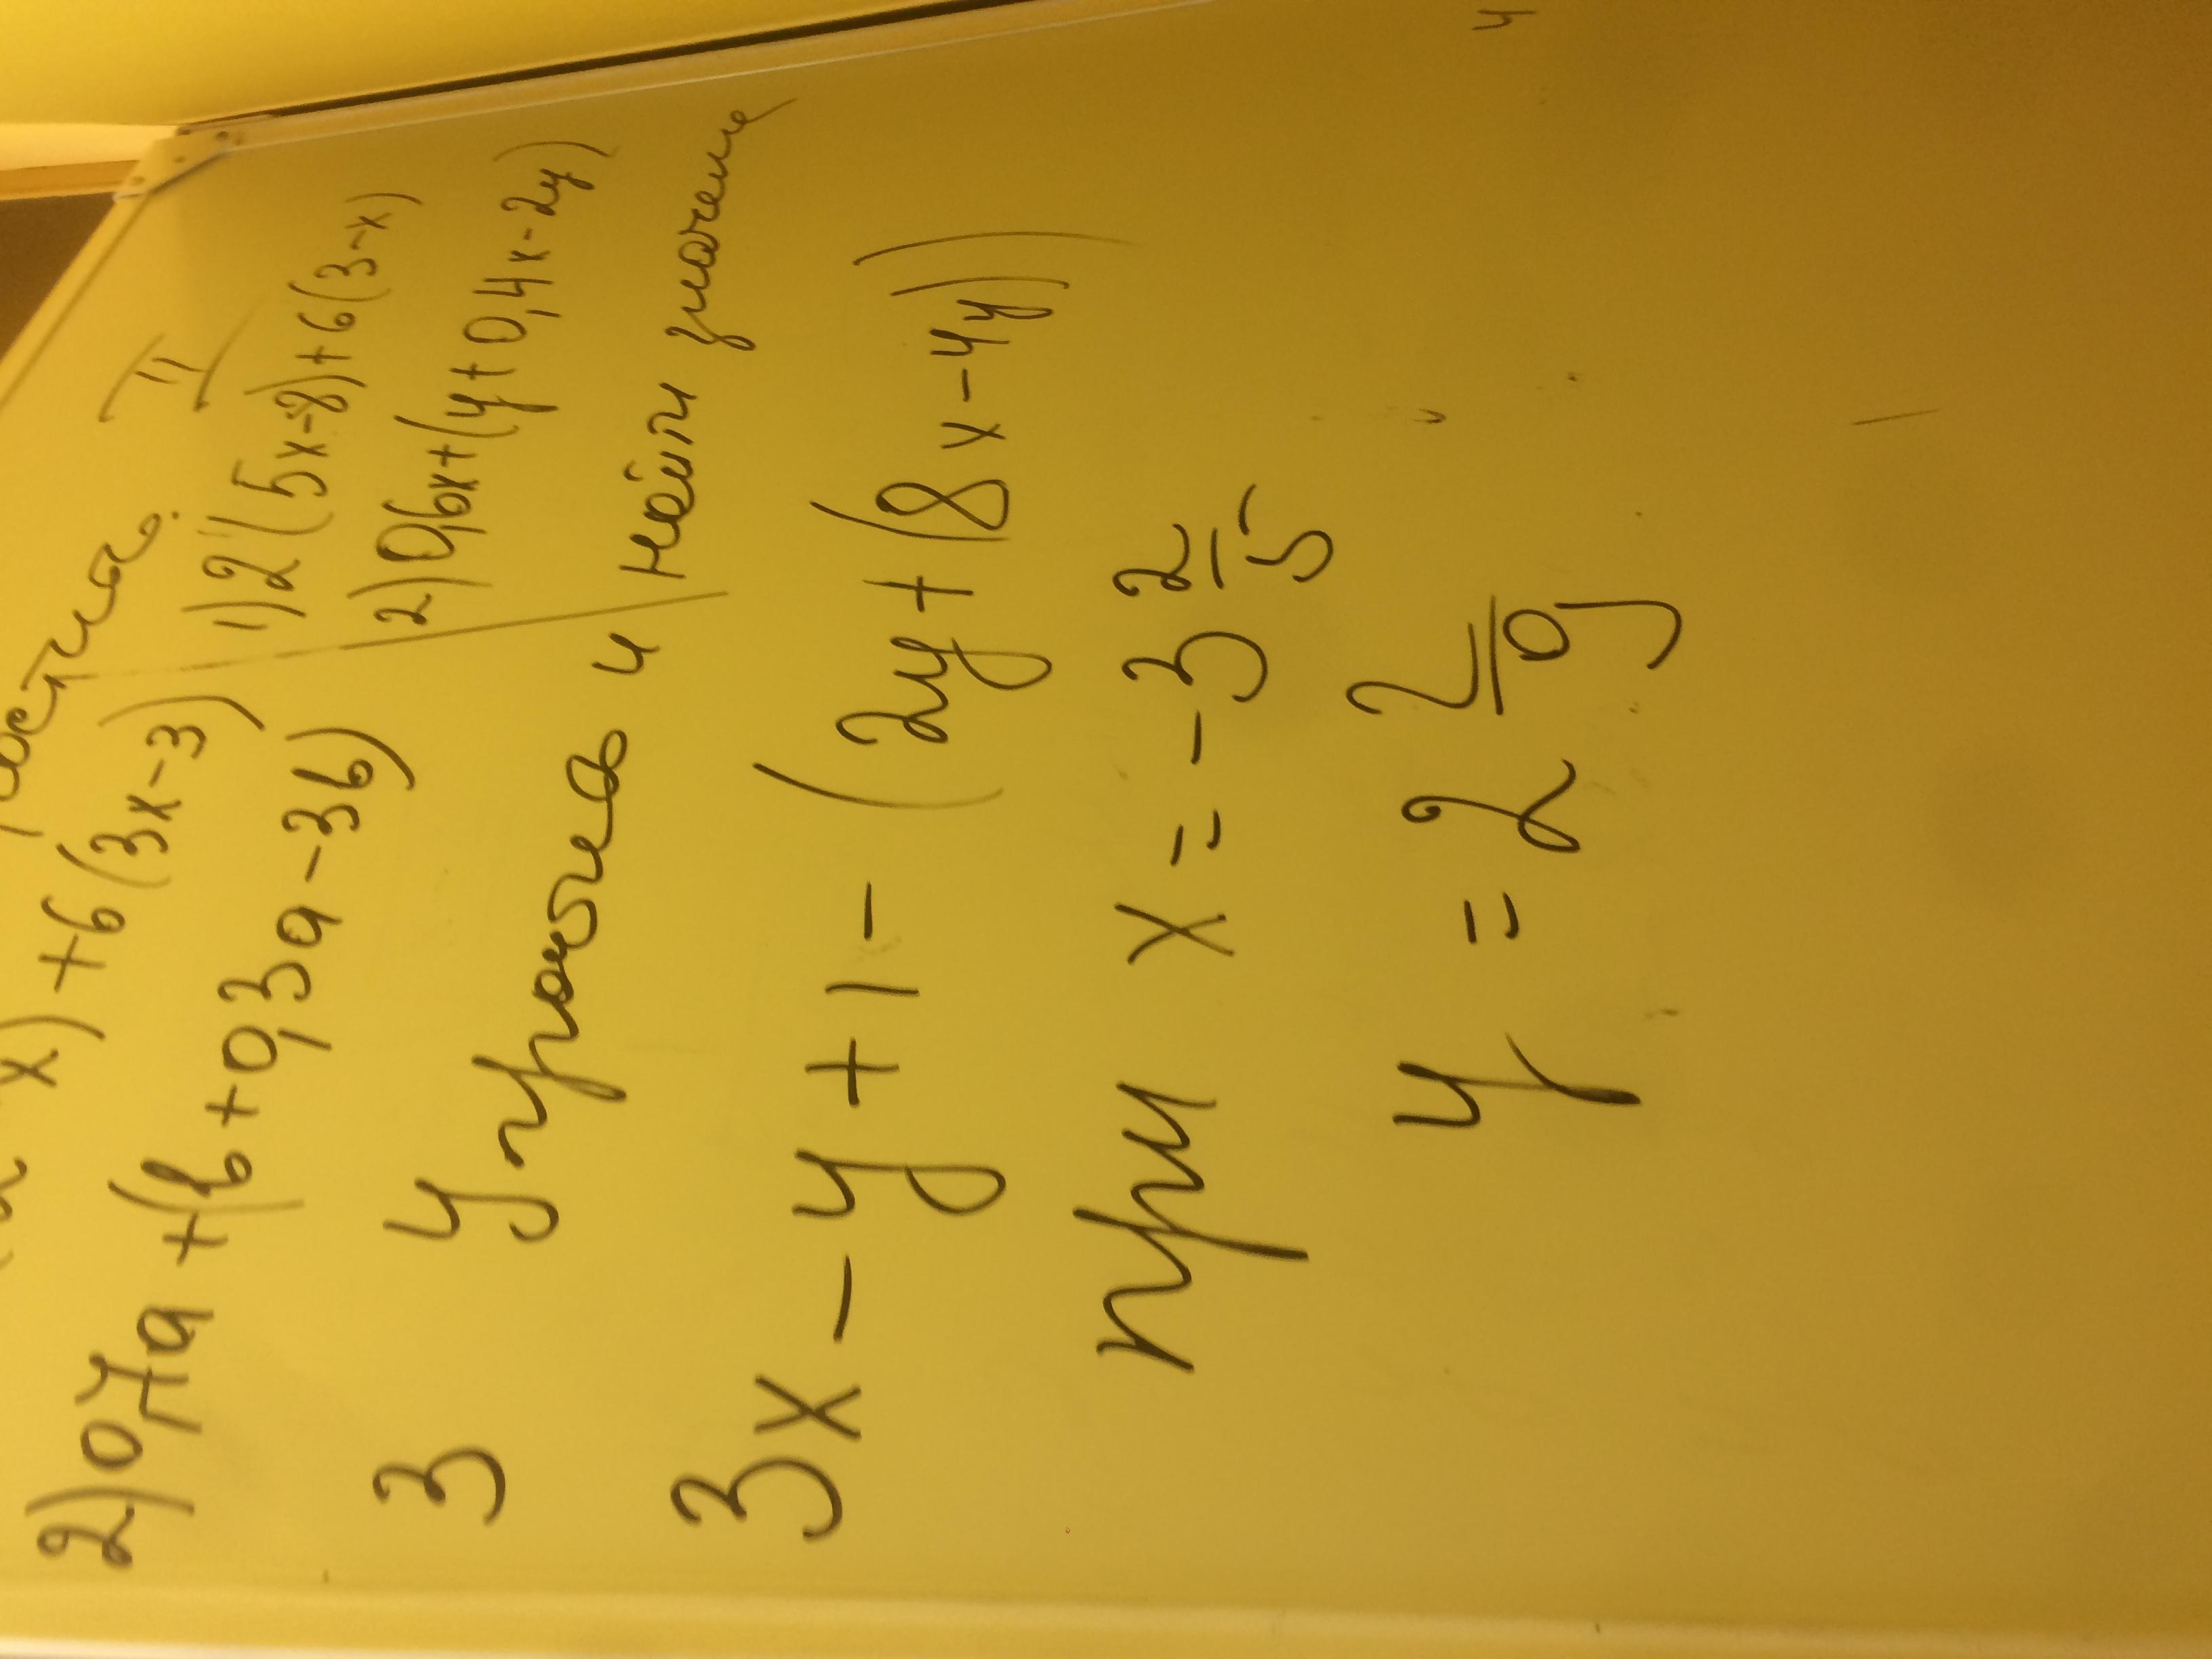 II
x) + 6(3x-3)
2) 0,7a + (b + 0,3a - 3b)
1) 2(5x-8)+6(3-x)
2) 0,6x+(y+0,4x-2y)
3 упрость и найти значение
3x - y + 1 - (2y + (8x-4y))
при x = -3 2/15
y = 2 2/9